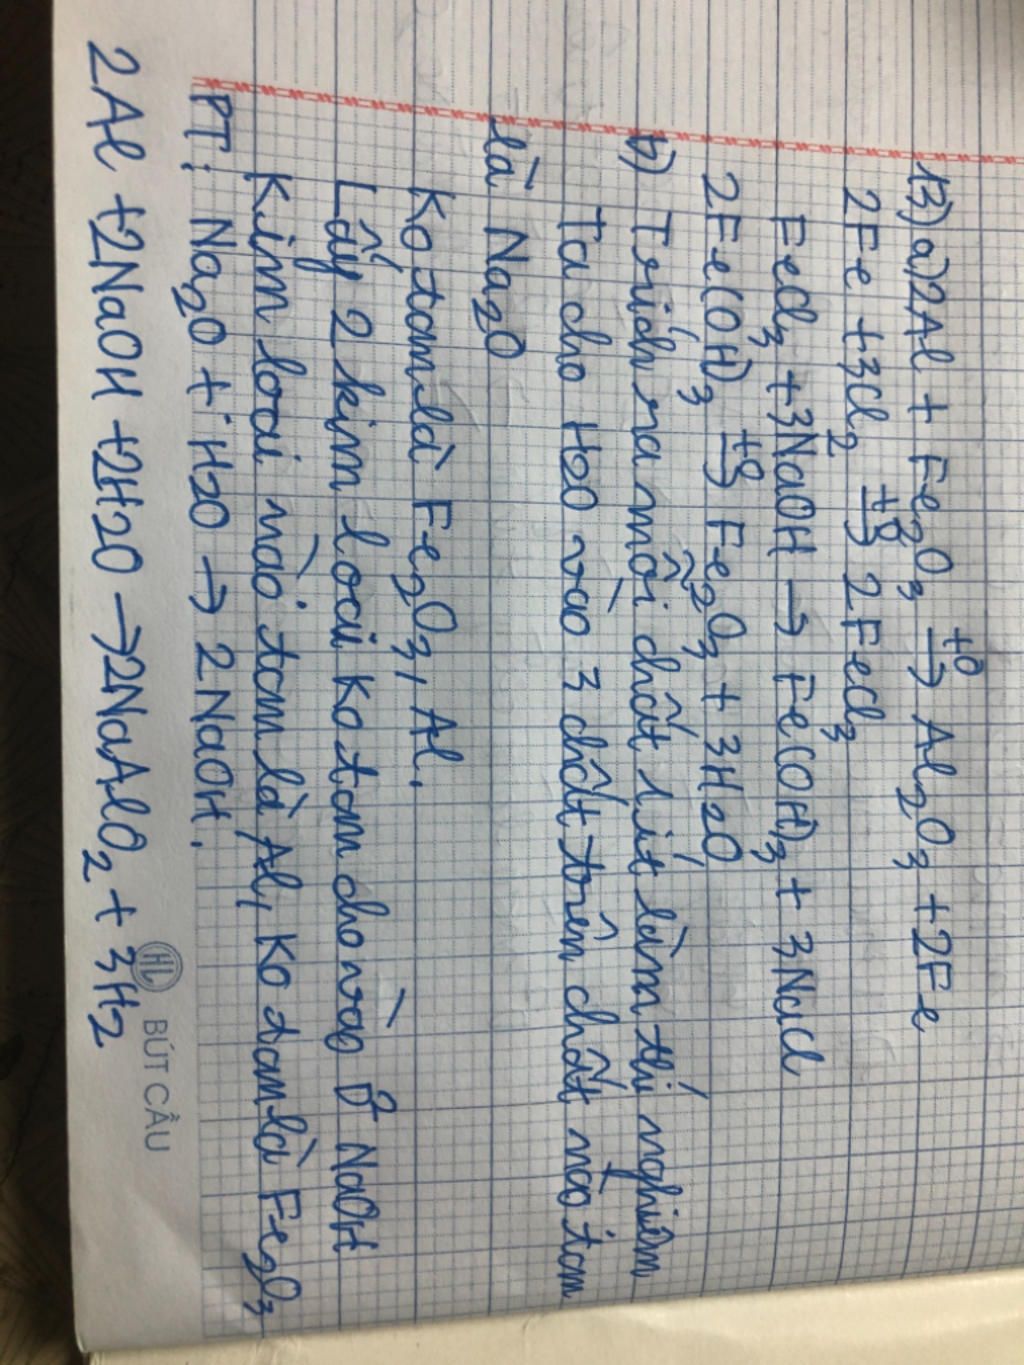 13) a) 2Al + Fe₂O₃ →t⁰ Al₂O₃ + 2Fe
2Fe + 3Cl₂ →t⁰ 2FeCl₃
FeCl₃ + 3NaOH → Fe(OH)₃ + 3NaCl
2Fe(OH)₃ →t⁰ Fe₂O₃ + 3H2O
b) Trích ra mỗi chất 1 ít làm thí nghiệm
Ta cho H2O vào 3 chất trên chất nào tan
là Na₂O
Ko tan là Fe₂O₃, Al.
Lấy 2 kim loại Ko tan cho vào NaOH
Kim loại nào tan là Al, Ko tan là Fe₂O₃
PT: Na₂O + H2O → 2NaOH.
2Al + 2NaOH + 2H2O → 2NaAlO₂ + 3H₂
HL BÚT CẦU